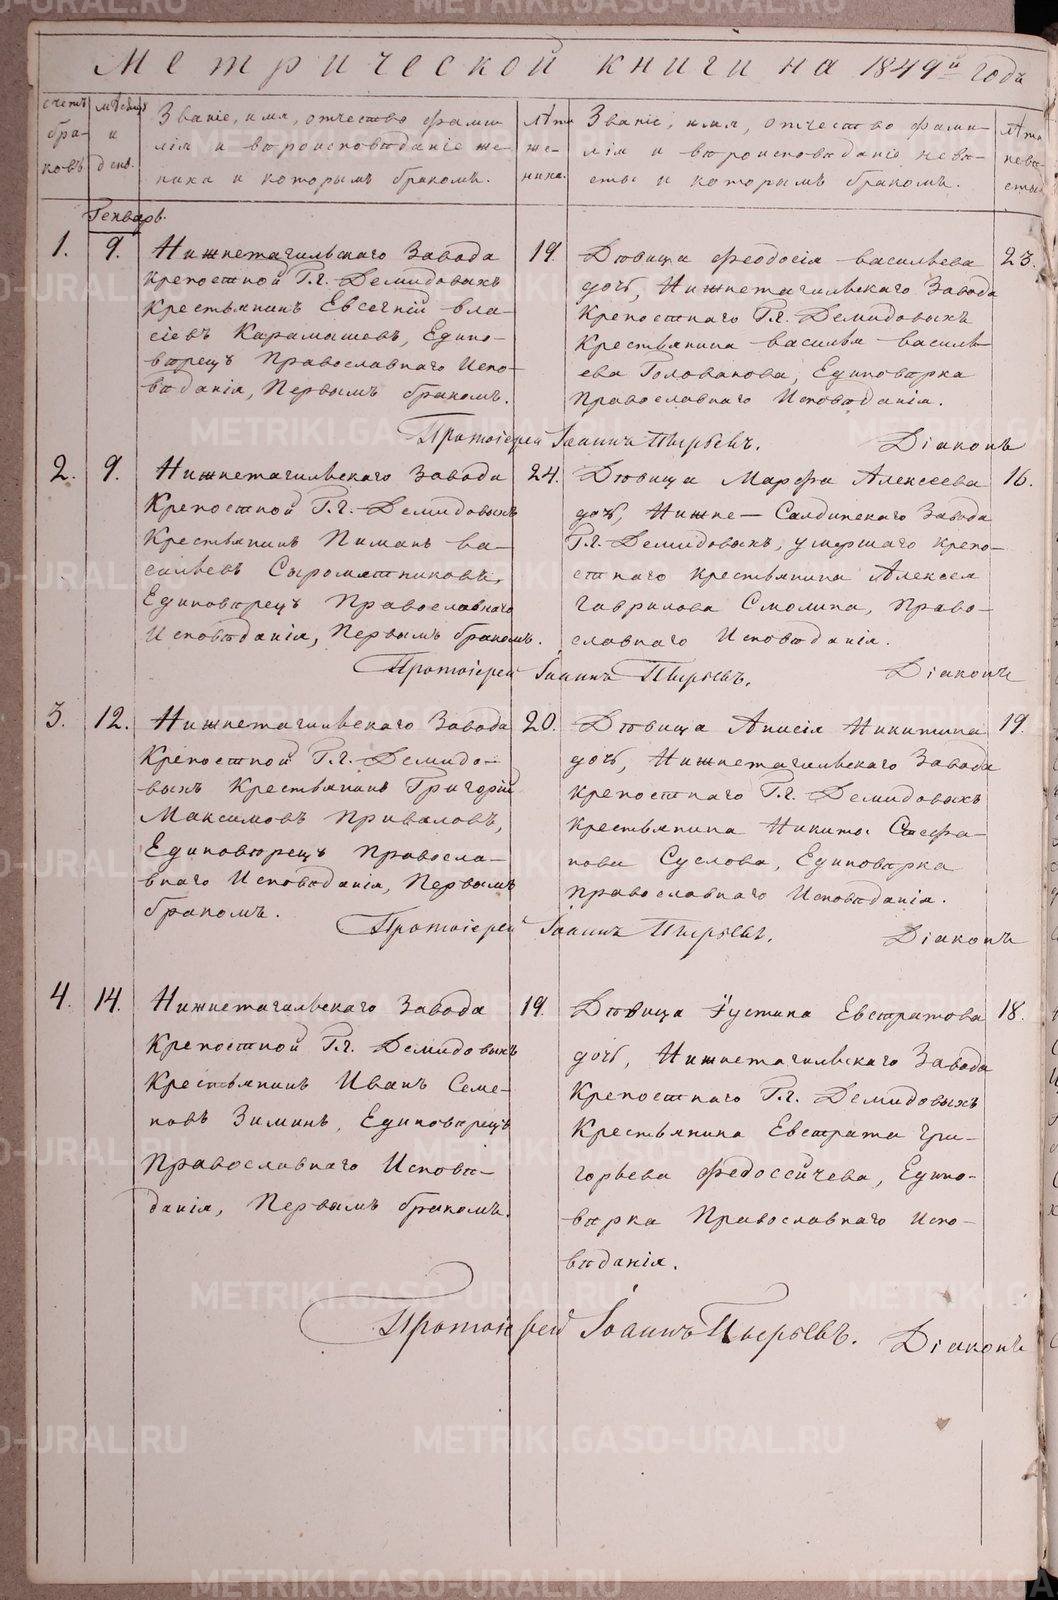 Метрической книги на 1849й годъ
счетъ браковъ
мѣсяцъ и день.
Званіе, имя, отчество фами-
лія и вѣроисповѣданіе же-
ниха и которымъ бракомъ.
Лѣта же-
ниха.
Званіе, имя, отчество фами-
лія и вѣроисповѣданіе невѣ-
сты и которымъ бракомъ.
Лѣта невѣ-
сты
Генварь.
1. 9. Нижнетагильскаго Завода
Крепостной Г.г. Демидовыхъ
Крестьянинъ Евсегній Вла-
сіевъ Карамышевъ, Едино-
вѣрецъ Православнаго Испо-
вѣданія, Первымъ бракомъ.
19.
Дѣвица Феодосія Васильева
дочь, Нижнетагильскаго Завода
Крепостнаго Г.г. Демидовыхъ
Крестьянина Василья Василь-
ева Голованова, Единовѣрка
Православнаго Исповѣданія.
23.
Протоіерей Іоаннъ Пырьевъ. Діаконъ
2. 9. Нижнетагильскаго Завода
Крепостной Г.г. Демидовыхъ
Крестьянинъ Пиманъ Ва-
сильевъ Сыромятниковъ,
Единовѣрецъ Православнаго
Исповѣданія, Первымъ бракомъ.
24.
Дѣвица Марфа Алексеева
дочь, Нижне-Салдинскаго Завода
Г.г. Демидовыхъ, умершаго крепо-
стнаго крестьянина Алексея
Гаврилова Смолина, Право-
славнаго Исповѣданія.
16.
Протоіерей Іоаннъ Пырьевъ. Діаконъ
3. 12. Нижнетагильскаго Завода
Крепостной Г.г. Демидо-
выхъ Крестьянинъ Григорій
Максимовъ Приваловъ,
Единовѣрецъ Правосла-
внаго Исповѣданія, Первымъ
бракомъ.
20.
Дѣвица Анисія Никитина
дочь, Нижнетагильскаго Завода
Крепостнаго Г.г. Демидовыхъ
Крестьянина Никиты Стефа-
нова Суслова, Единовѣрка
Православнаго Исповѣданія.
19.
Протоіерей Іоаннъ Пырьевъ. Діаконъ
4. 14. Нижнетагильскаго Завода
Крепостной Г.г. Демидовыхъ
Крестьянинъ Иванъ Семе-
новъ Зиминъ, Единовѣрецъ
Православнаго Исповѣ-
данія, Первымъ бракомъ.
19.
Дѣвица Іустина Евстратова
дочь, Нижнетагильскаго Завода
Крепостнаго Г.г. Демидовыхъ
Крестьянина Евстрата Гри-
горьева Федоссеичева, Едино-
вѣрка Православнаго Испо-
вѣданія.
18.
Протоіерей Іоаннъ Пырьевъ. Діаконъ
METRIKI.GASO-URAL.RU